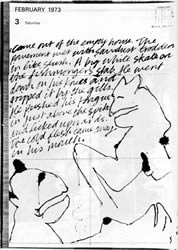 FEBRUARY 1973
3 Saturday
came out of the empty house. The
pavement wet with sawdust trodden
to like slush. A big white skate on
the fishmongers slab. He went
down on his face and
by the gills.
He pushed his tongue
in just above the spike
and licked upwards.
The cold flesh came away
in his mouth.